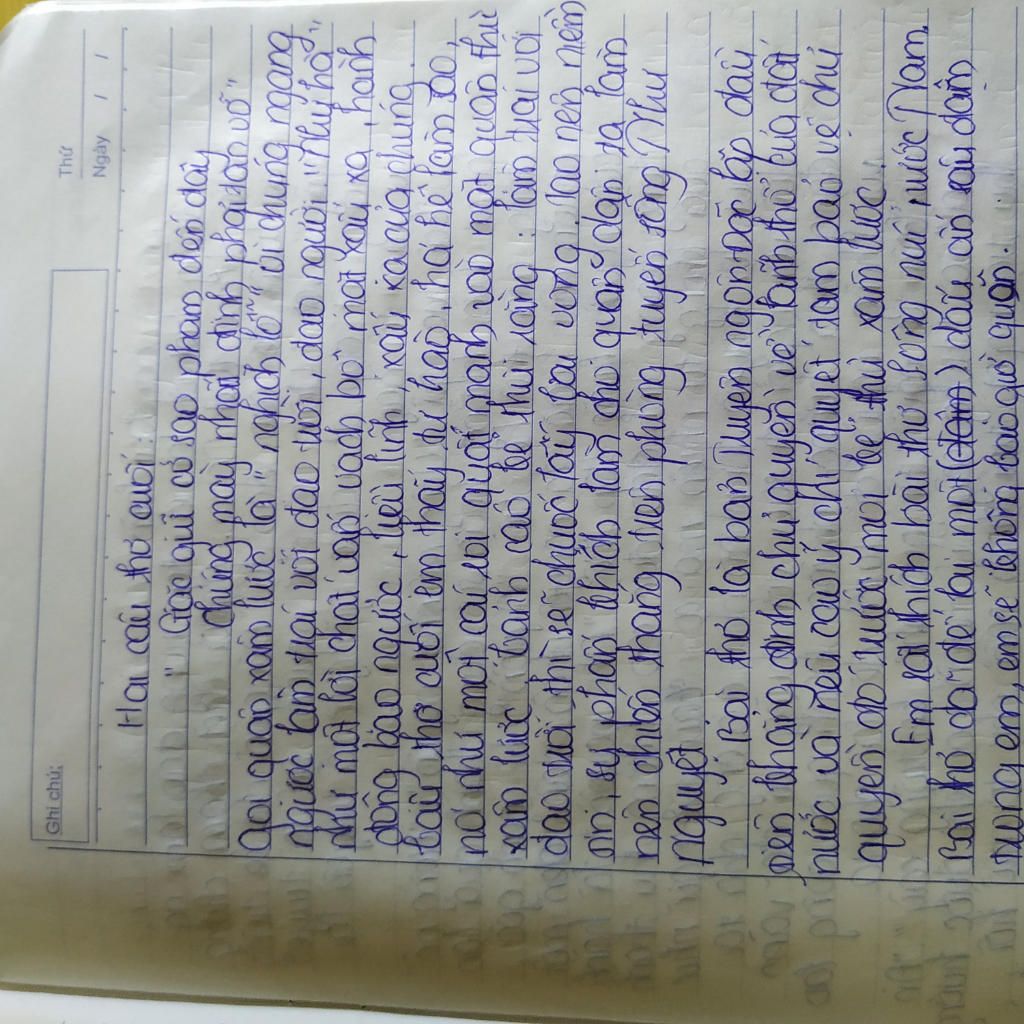 Thứ
Ngày / /
Ghi chú:
Hai câu thơ cuối:
" Giặc giữ cớ sao phạm đến đây
chúng mày nhất định phải tan vỡ"
Gọi quân xâm lược là " nghịch lỗ" vì chúng ngang
ngược làm trái với đạo trời, đạo người. "Như hà"
như một lời chất vấn vạch bộ mặt xấu xa, hành
động bạo ngược, liều lĩnh xấu xa của chúng.
câu thơ cuối em thấy tự hào, hả hê làm sao,
nó như một cái roi quất mạnh vào một quân thù
xâm lược cảnh cáo bè thù rằng: làm trái với
đạo trời thì sẽ chuốc lấy bại vong. Tạo nên niềm
tin, sự phấn khích làm cho quân dân ta làm
nên chiến thắng trên phòng tuyến sông Như
Nguyệt.
Bài thơ là bản Tuyên ngôn Độc lập đầu
tiên khẳng định chủ quyền về lãnh thổ của đất
nước và nêu cao ý chí quyết tâm bảo vệ chủ
quyền đó trước mọi bè thù xâm lược.
Em rất thích bài thơ Sông núi nước Nam.
Bài thơ đã để lại một dấu ấn sâu đậm
trong em, em sẽ không bao giờ quên.